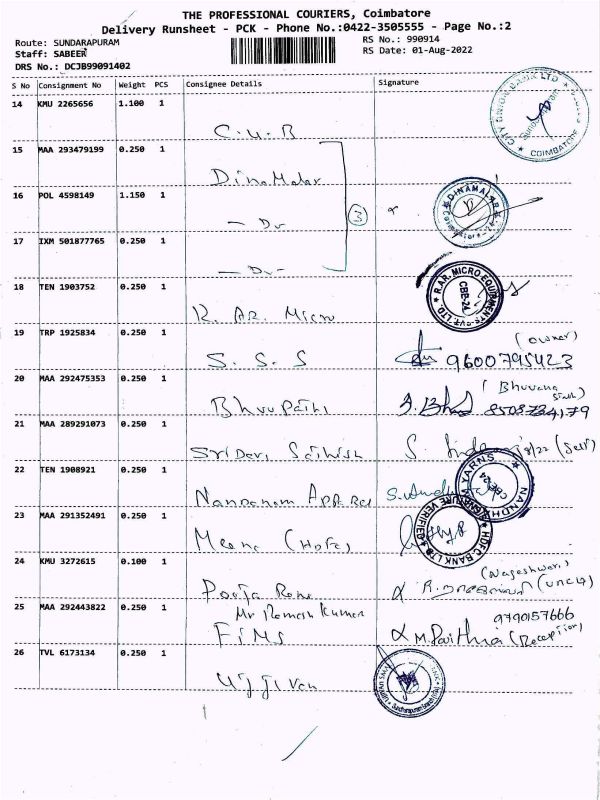 THE PROFESSIONAL COURIERS, Coimbatore
Delivery Runsheet - PCK - Phone No.:0422-3505555 - Page No.:2
Route: SUNDARAPURAM
RS No.: 990914
Staff: SABEER
RS Date: 01-Aug-2022
DRS No.: DCJB99091402
S No Consignment No Weight PCS Consignee Details Signature
14 KMU 2265656 1.100 1
C.U.B
CITY UNION BANK LTD
COIMBATORE
15 MAA 293479199 0.250 1
Dinamalar
16 POL 4598149 1.150 1
- Do
3
DINAMALAR
17 IXM 501877765 0.250 1
- Do -
18 TEN 1903752 0.250 1
R. AR. Micro
R.AR. MICRO EQUIPMENTS PVT LTD.
CBE-24
19 TRP 1925834 0.250 1
S. S. S
(owner)
9600795423
20 MAA 292475353 0.250 1
Bhuupathi
(Bhuvana
8508734179
21 MAA 289291073 0.250 1
Sridevi Sathish
(Self)
22 TEN 1908921 0.250 1
Nandanam Apparel
YARNS
CBE-24
23 MAA 291352491 0.250 1
Meena (Hdfc)
HDFC BANK LTD
SIGNATURE VERIFIED
24 KMU 3272615 0.100 1
Pooja
(Nageshwari)
(uncle)
25 MAA 292443822 0.250 1
Mr Ramesh Kumar
FIMS
9790157666
(Reception)
26 TVL 6173134 0.250 1
Ujjivan